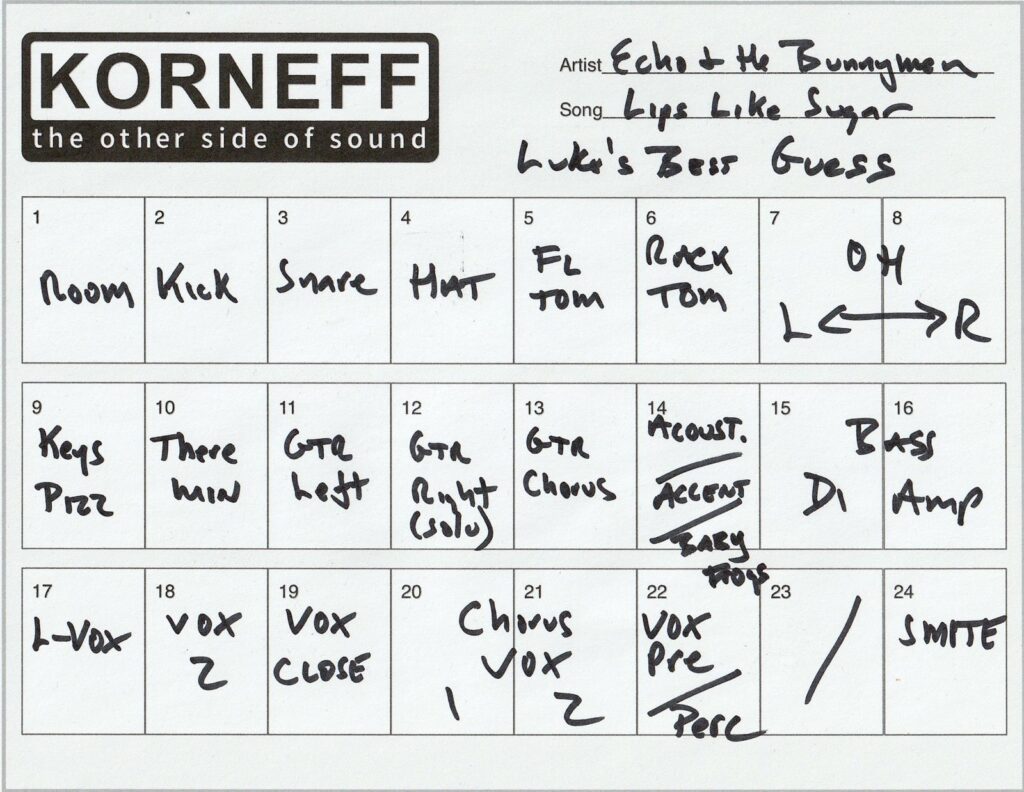 KORNEFF
the other side of sound
Artist Echo + the Bunnymen
Song Lips Like Sugar
Luke's Best Guess
1 2 3 4 5 6 7 8
Room Kick Snare HAT FL TOM RACK TOM OH
L R
9 10 11 12 13 14 15 16
Keys Pizz
There min
GTR Left
GTR Right (solo)
GTR Chorus
ACOUST.
ACCENT
BABY FROGS
BASS
DI Amp
17 18 19 20 21 22 23 24
L-VOX
VOX 2
VOX CLOSE
Chorus VOX
1 2
VOX Pre
/ Perc
/
SMPTE